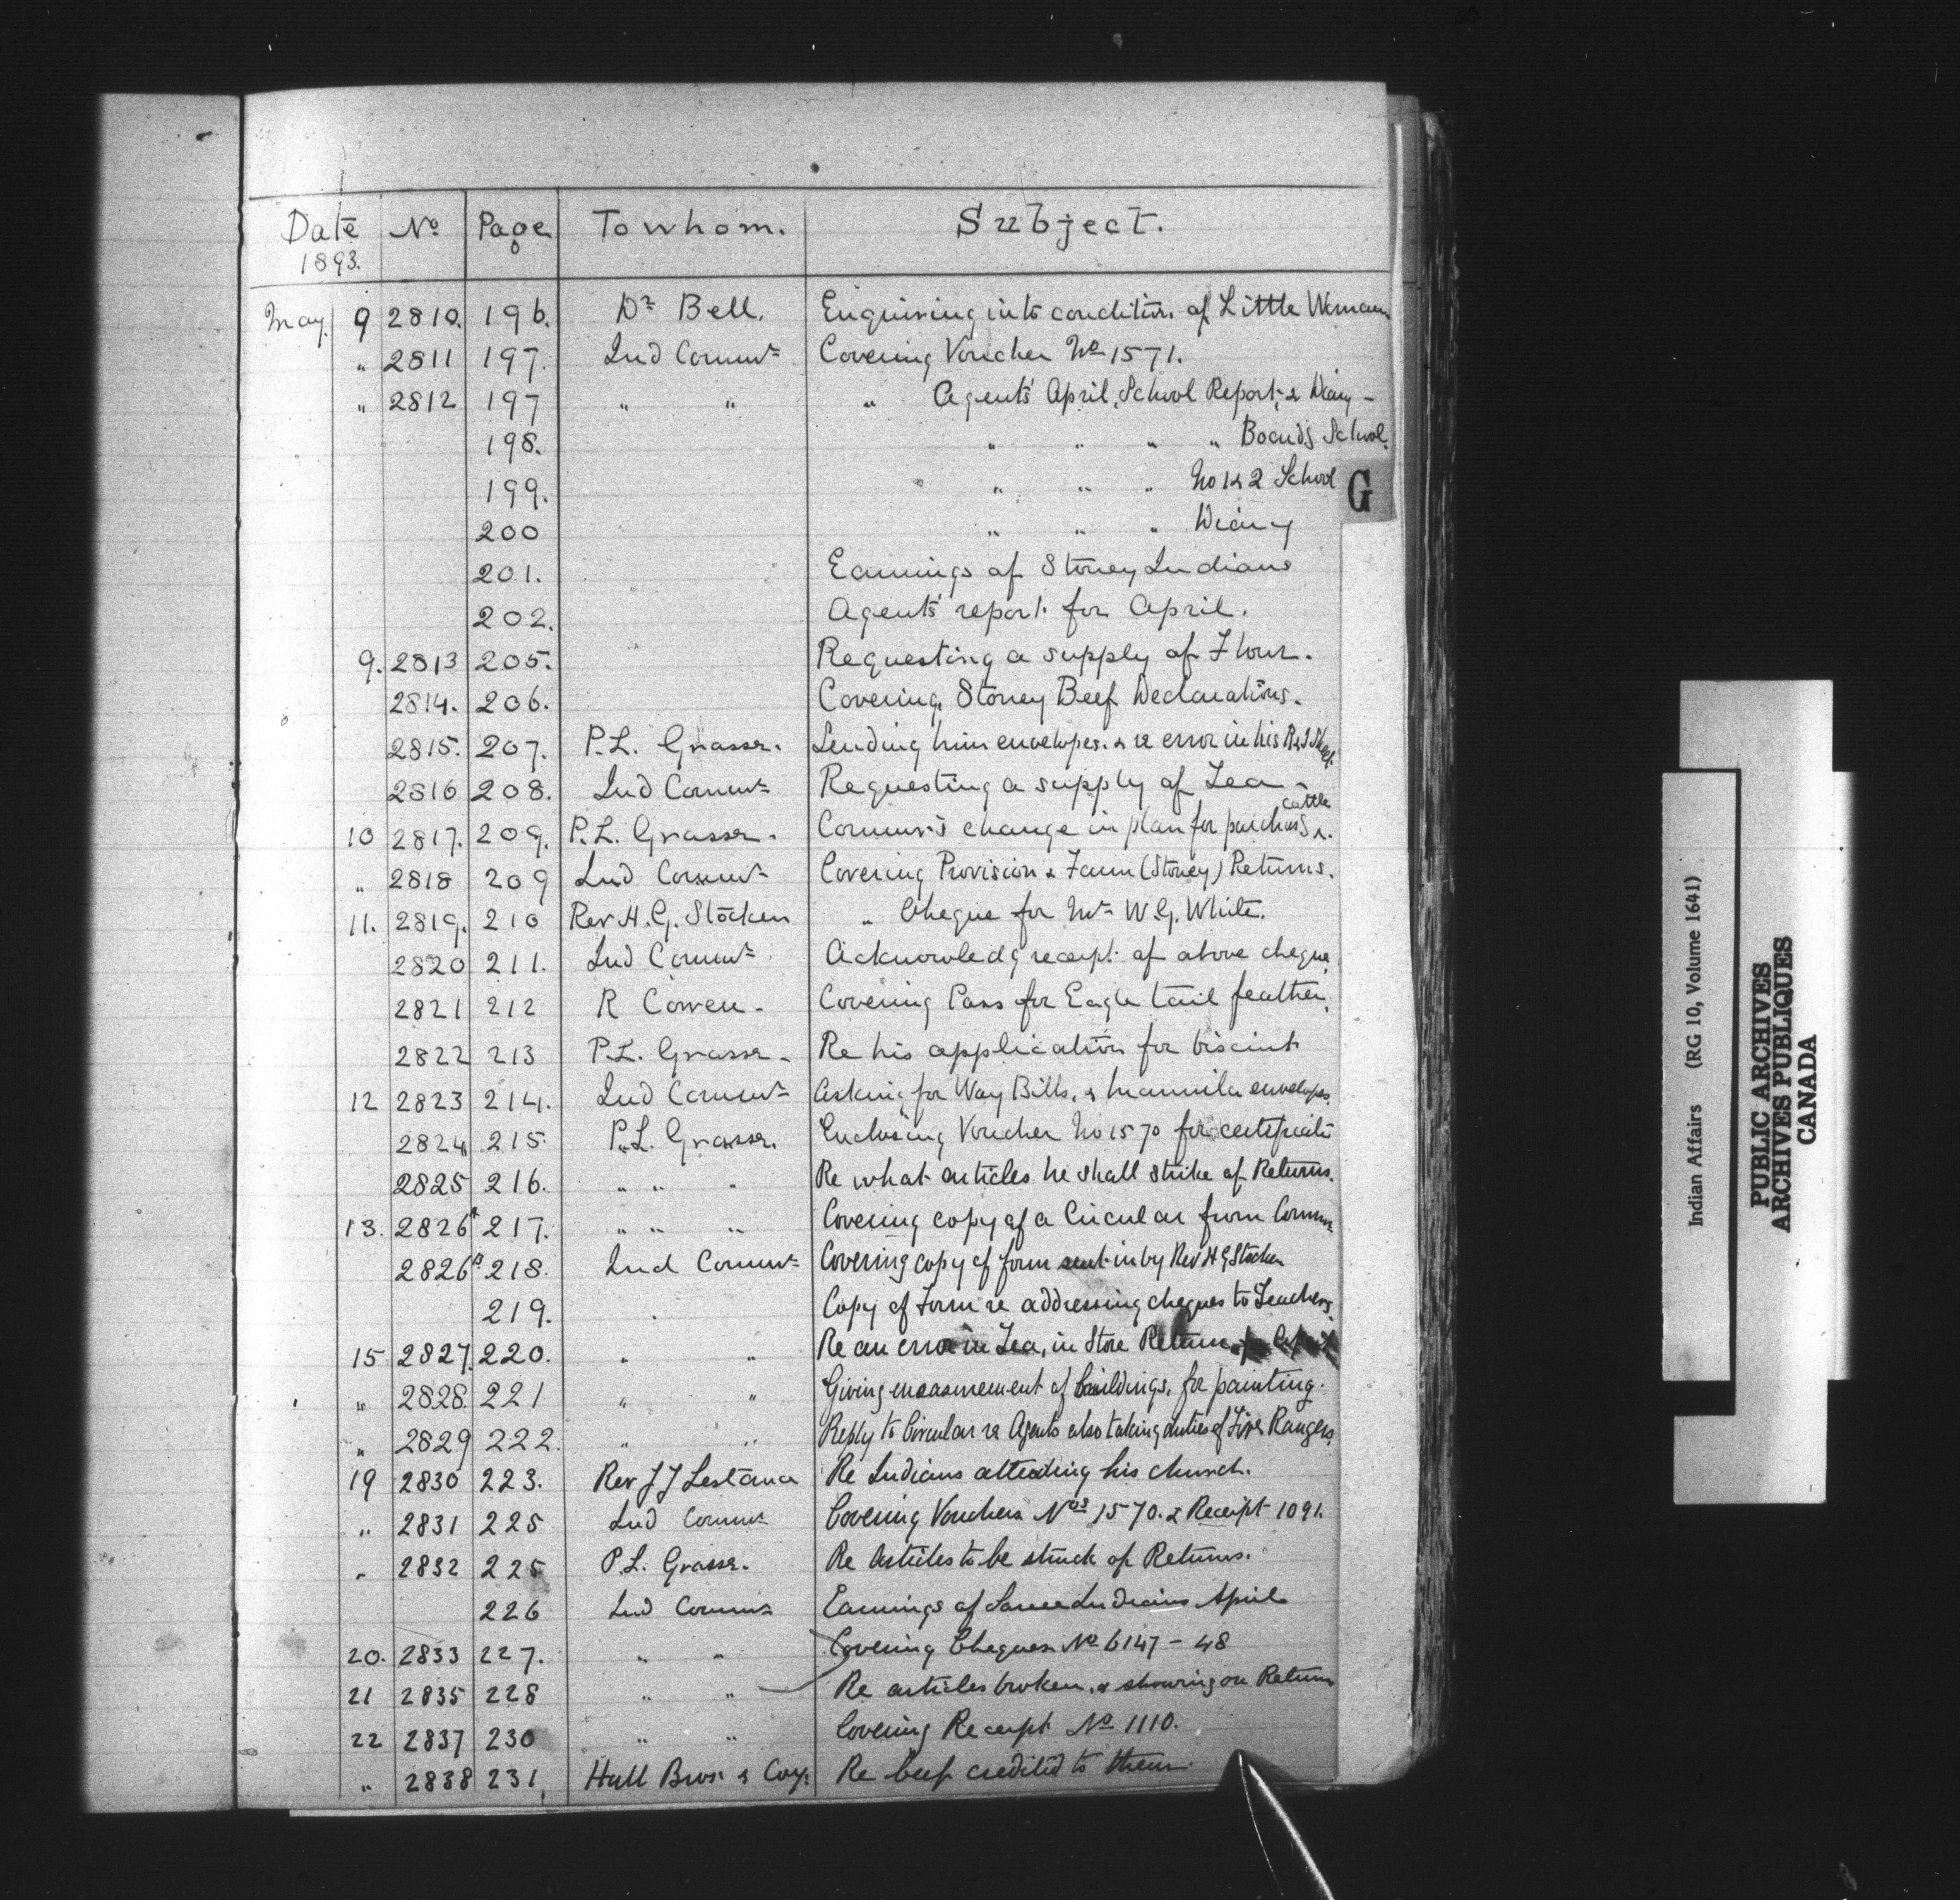 Date No Page To whom. Subject.
1893.
May. 9 2810. 196. Dr Bell. Enquiring into condition of Little Woman
" 2811 197. Ind Commr Covering Voucher No 1571.
" 2812 197 " " " Agents' April, School Report, & Diary -
198. " " " " Board'g School.
199. " " " No 1 & 2 School
G
200 " " " Diary
201. Earnings of Stoney Indians
202. Agents' report for April.
9. 2813 205. Requesting a supply of Flour.
2814. 206. Covering Stoney Beef Declarations.
2815. 207. P.L. Grasse. Sending him envelopes. & re error in his R & I Sheet.
2816 208. Ind Commr Requesting a supply of Tea -
10 2817. 209. P.L. Grasse. Commr's change in plan for purchas'g cattle.
" 2818 209 Ind Commr Covering Provision & Farm (Stoney) Returns.
11. 2819. 210 Rev H. G. Stocken " Cheque for Mr W. G. White.
2820 211. Ind Commr Acknowledg receipt of above cheque
2821 212 R Cowen. Covering Pass for Eagle tail feather.
2822 213 P.L. Grasse. Re his application for biscuit
12 2823 214. Ind Commr Asking for Way Bills, & manmila envelopes.
2824 215. P.L. Grasse. Enclosing Voucher No 1570 for certificate
2825 216. " " " Re what articles he shall strike of Returns.
13. 2826A 217. " " " Covering copy of a Circular from Commr
2826B 218. Ind Commr Covering copy of form sent in by Rev H G Stocken
219. " Copy of Form re addressing cheques to Teachers.
15 2827. 220. " " Re an error in Tea, in Store Return for April
" 2828. 221 " " Giving measurement of buildings, for painting.
" 2829 222. " " Reply to Circular re Agents also taking duties of Fire Rangers.
19 2830 223. Rev J J Lestanc Re Indians attending his church.
" 2831 225 Ind Commr Covering Vouchers Nos 1570. & Receipt 1091.
" 2832 225 P.L. Grasse. Re Articles to be struck of Returns.
226 Ind Commr Earnings of Sarcee Indians April
20. 2833 227. " " Covering Cheques No 6147 - 48
21 2835 228 " " Re articles broken, & showing on Return
22 2837 230 " " Covering Receipt No 1110.
" 2838 231 Hull Bros. & Coy. Re beef credited to them.
Indian Affairs (RG 10, Volume 1641)
PUBLIC ARCHIVES
ARCHIVES PUBLIQUES
CANADA